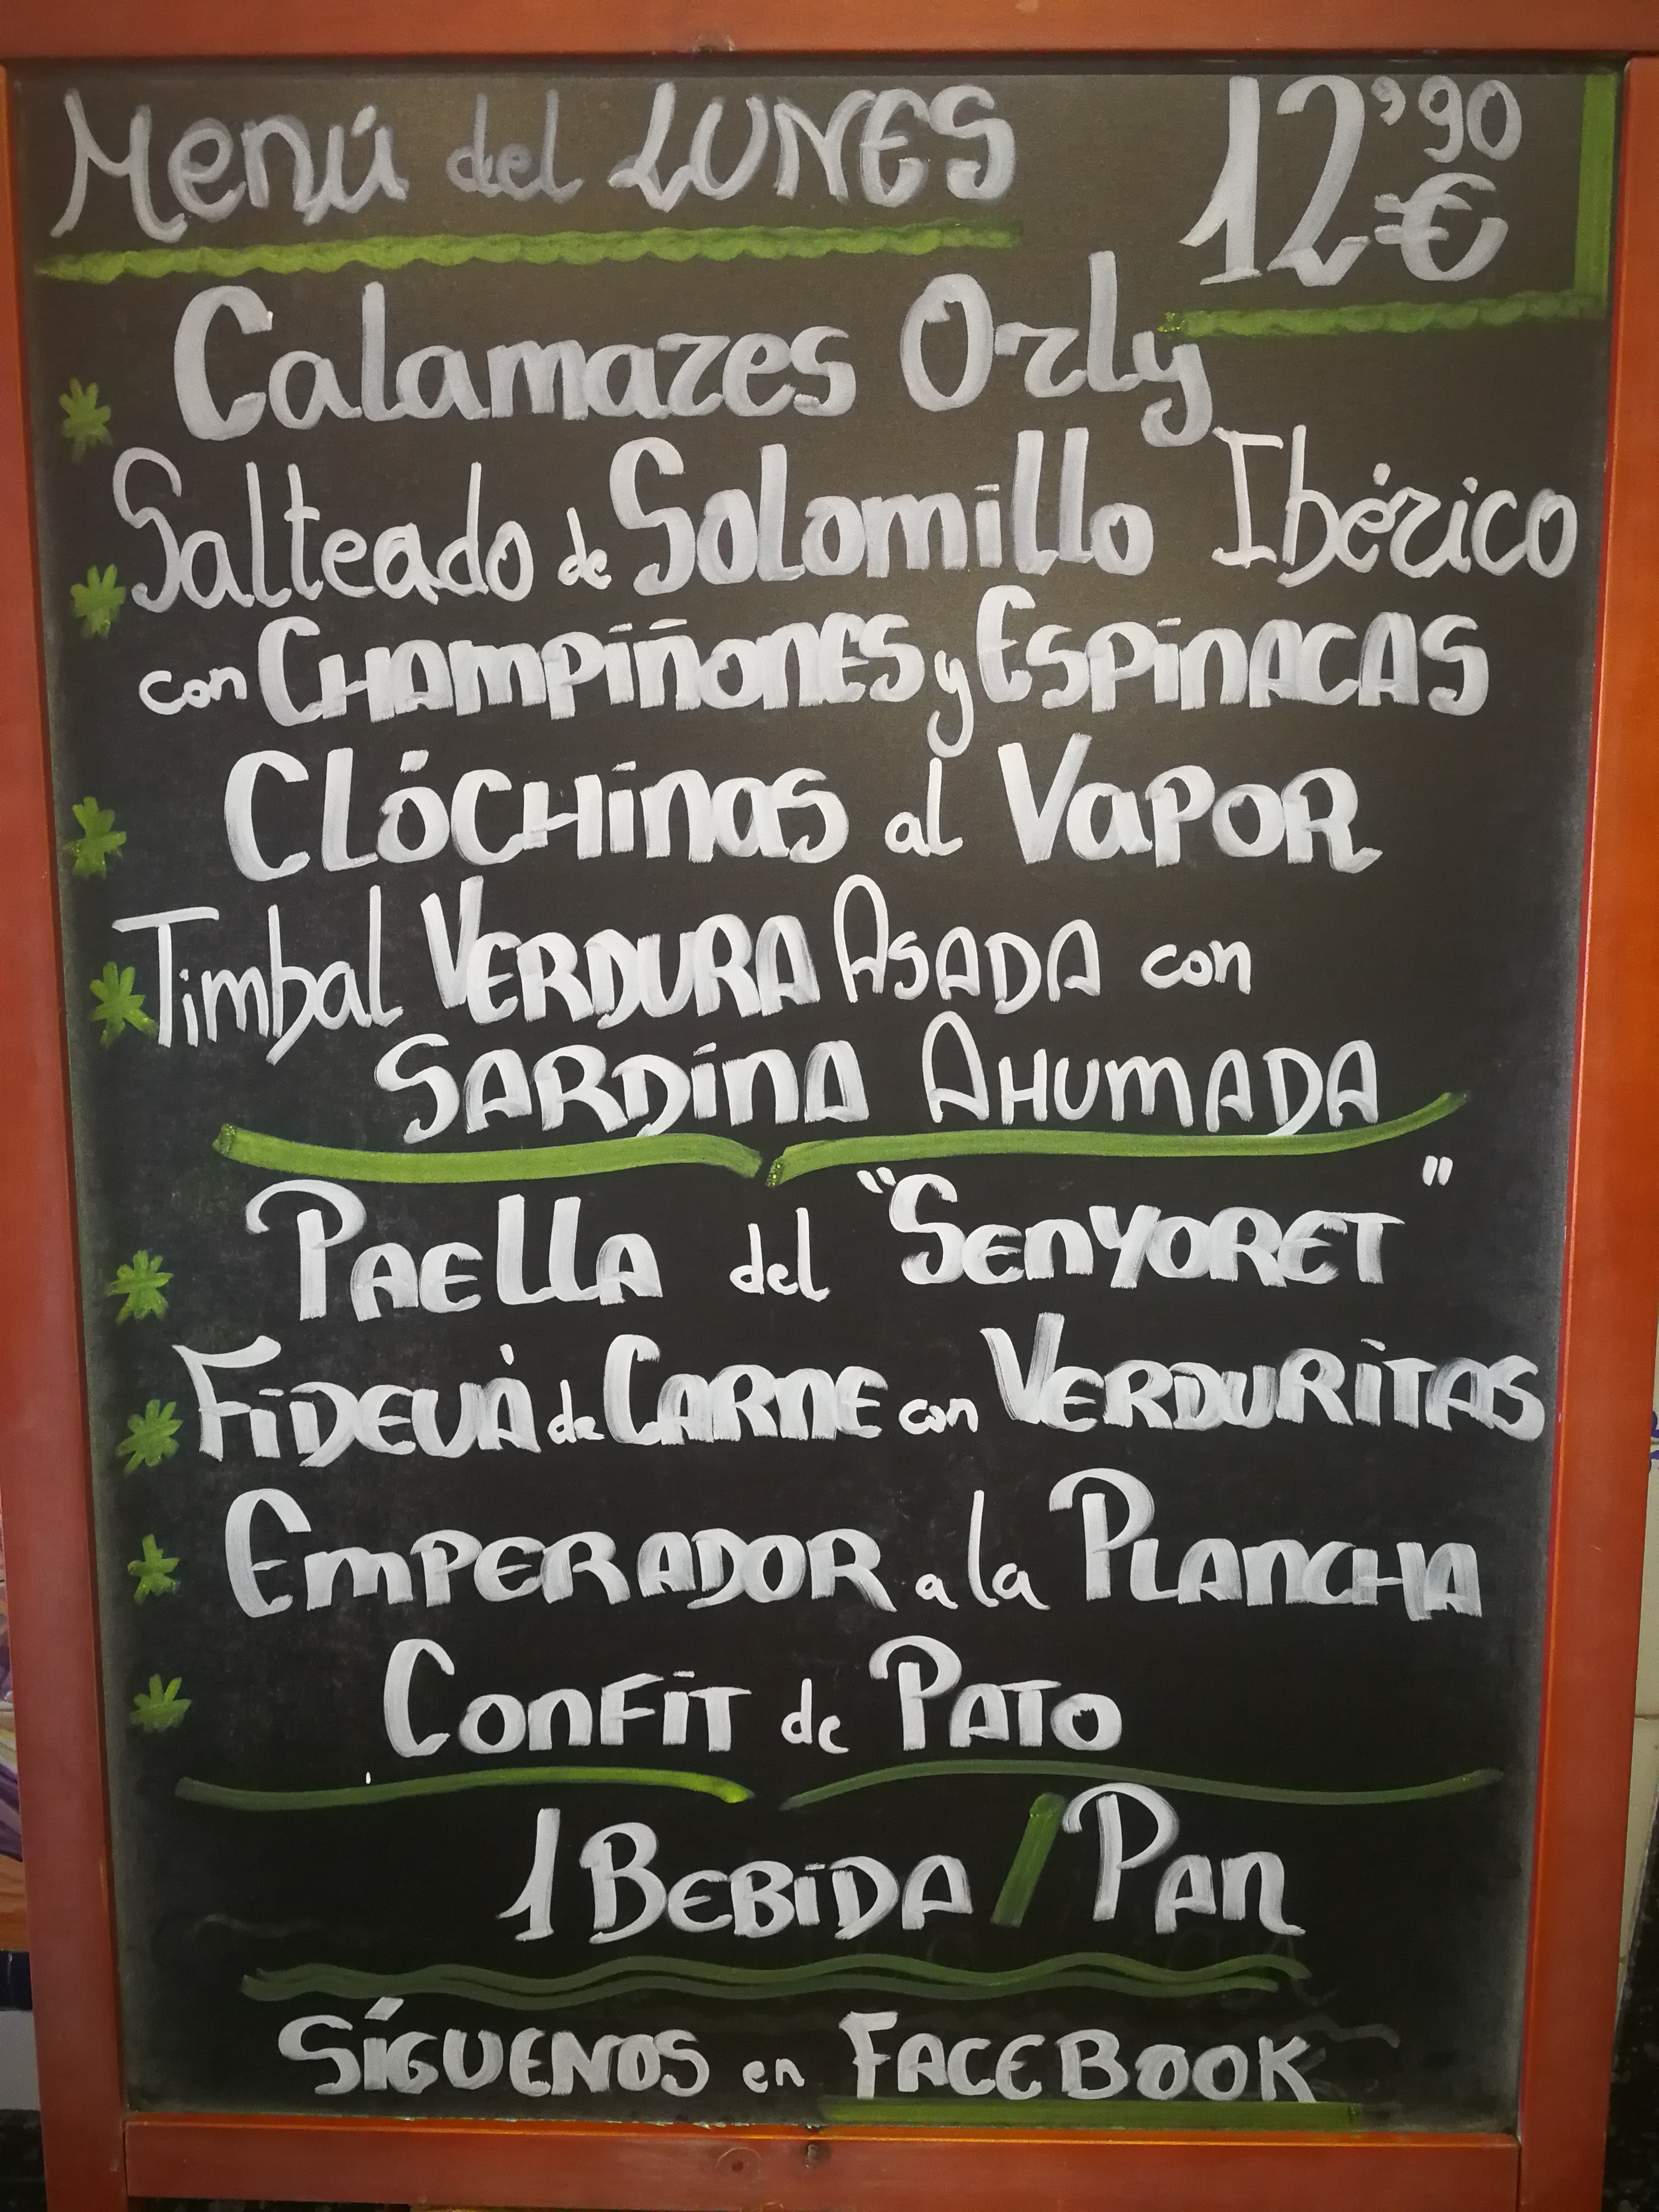 Menú del LUNES 12'90 €
Calamares Orly
* Salteado de Solomillo Ibérico
* con CHAMPIÑONES y ESPINACAS
CLÓCHINAS al VAPOR
* Timbal VERDURA ASADA con
* SARDINA AHUMADA
* PAELLA del "SENYORET"
* FIDEUÀ de CARNE con VERDURITAS
* EMPERADOR a la PLANCHA
* CONFIT de PATO
1 BEBIDA / PAN
SÍGUENOS en FACEBOOK